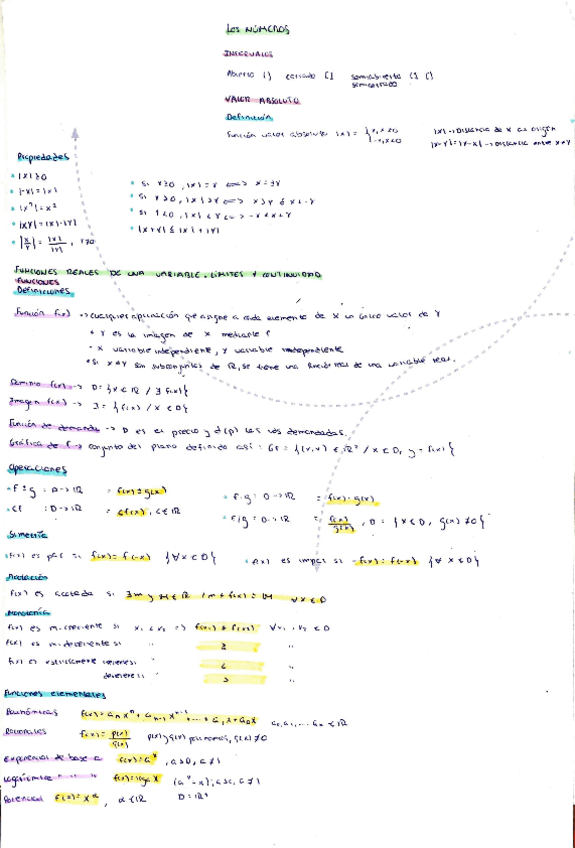 LOS NÚMEROS
INTERVALOS
Abierto ( ) cerrado [ ] semiabierto ( ] [ )
semicerrado
VALOR ABSOLUTO
Definición
Función valor absoluto |x| = { x, x≥0
-x, x<0
|x| → Distancia de x al origen
|x-y| = |y-x| → Distancia entre x e y
Propiedades
• |x| ≥ 0
• |-x| = |x|
• |xy| = |x|·|y|
• |x/y| = |x|/|y|, y≠0
• |x+y| ≤ |x| + |y|
FUNCIONES REALES DE UNA VARIABLE. LÍMITES Y CONTINUIDAD
FUNCIONES
Definiciones
Función f(x) → cualquier aplicación que asigne a cada elemento de X un único valor de Y
• Y es la imagen de X mediante f
• X variable independiente, Y variable
• Si X e Y son subconjuntos de ℝ, se tiene una función real de una variable real.
Dominio f(x) → D = {x ∈ ℝ / ∃ f(x)}
Imagen f(x) → I = {f(x) / x ∈ D}
Función de demanda → D es el precio y d(p) las uds demandadas.
Gráfica de f → conjunto del plano definido así: Gf = {(x,y) ∈ ℝ² / x ∈ D, y = f(x)}
Operaciones
• f ± g : D → ℝ = f(x) ± g(x)
• f·g : D → ℝ = f(x)·g(x)
• cf : D → ℝ = cf(x), c ∈ ℝ
• f/g : D → ℝ = f(x)/g(x), D = {x ∈ D, g(x) ≠ 0}
Simetría
• f(x) es par si f(x) = f(-x) {∀x ∈ D}
• f(x) es impar si -f(x) = f(-x) {∀x ∈ D}
Acotación
f(x) es acotada si ∃ m y M ∈ ℝ / m ≤ f(x) ≤ M ∀x ∈ D
Monotonía
f(x) es m. creciente si x₁ < x₂ => f(x₁) ≤ f(x₂) ∀x₁, x₂ ∈ D
f(x) es m. decreciente si " ≥ "
f(x) es estrictamente creciente si " < "
decreciente si " > "
Funciones elementales
Polinómicas f(x) = aₙxⁿ + aₙ₋₁xⁿ⁻¹ + ... + a₁x + a₀ a₀, a₁, ... aₙ ∈ ℝ
Racionales f(x) = p(x)/q(x) p(x) y q(x) polinomios, q(x) ≠ 0
Exponencial de base a f(x) = aˣ, a>0, a≠1
Logarítmica " " " f(x) = logₐx (aʸ = x); a>0, a≠1
Potencial f(x) = x^α, α ∈ ℝ D = ℝ⁺